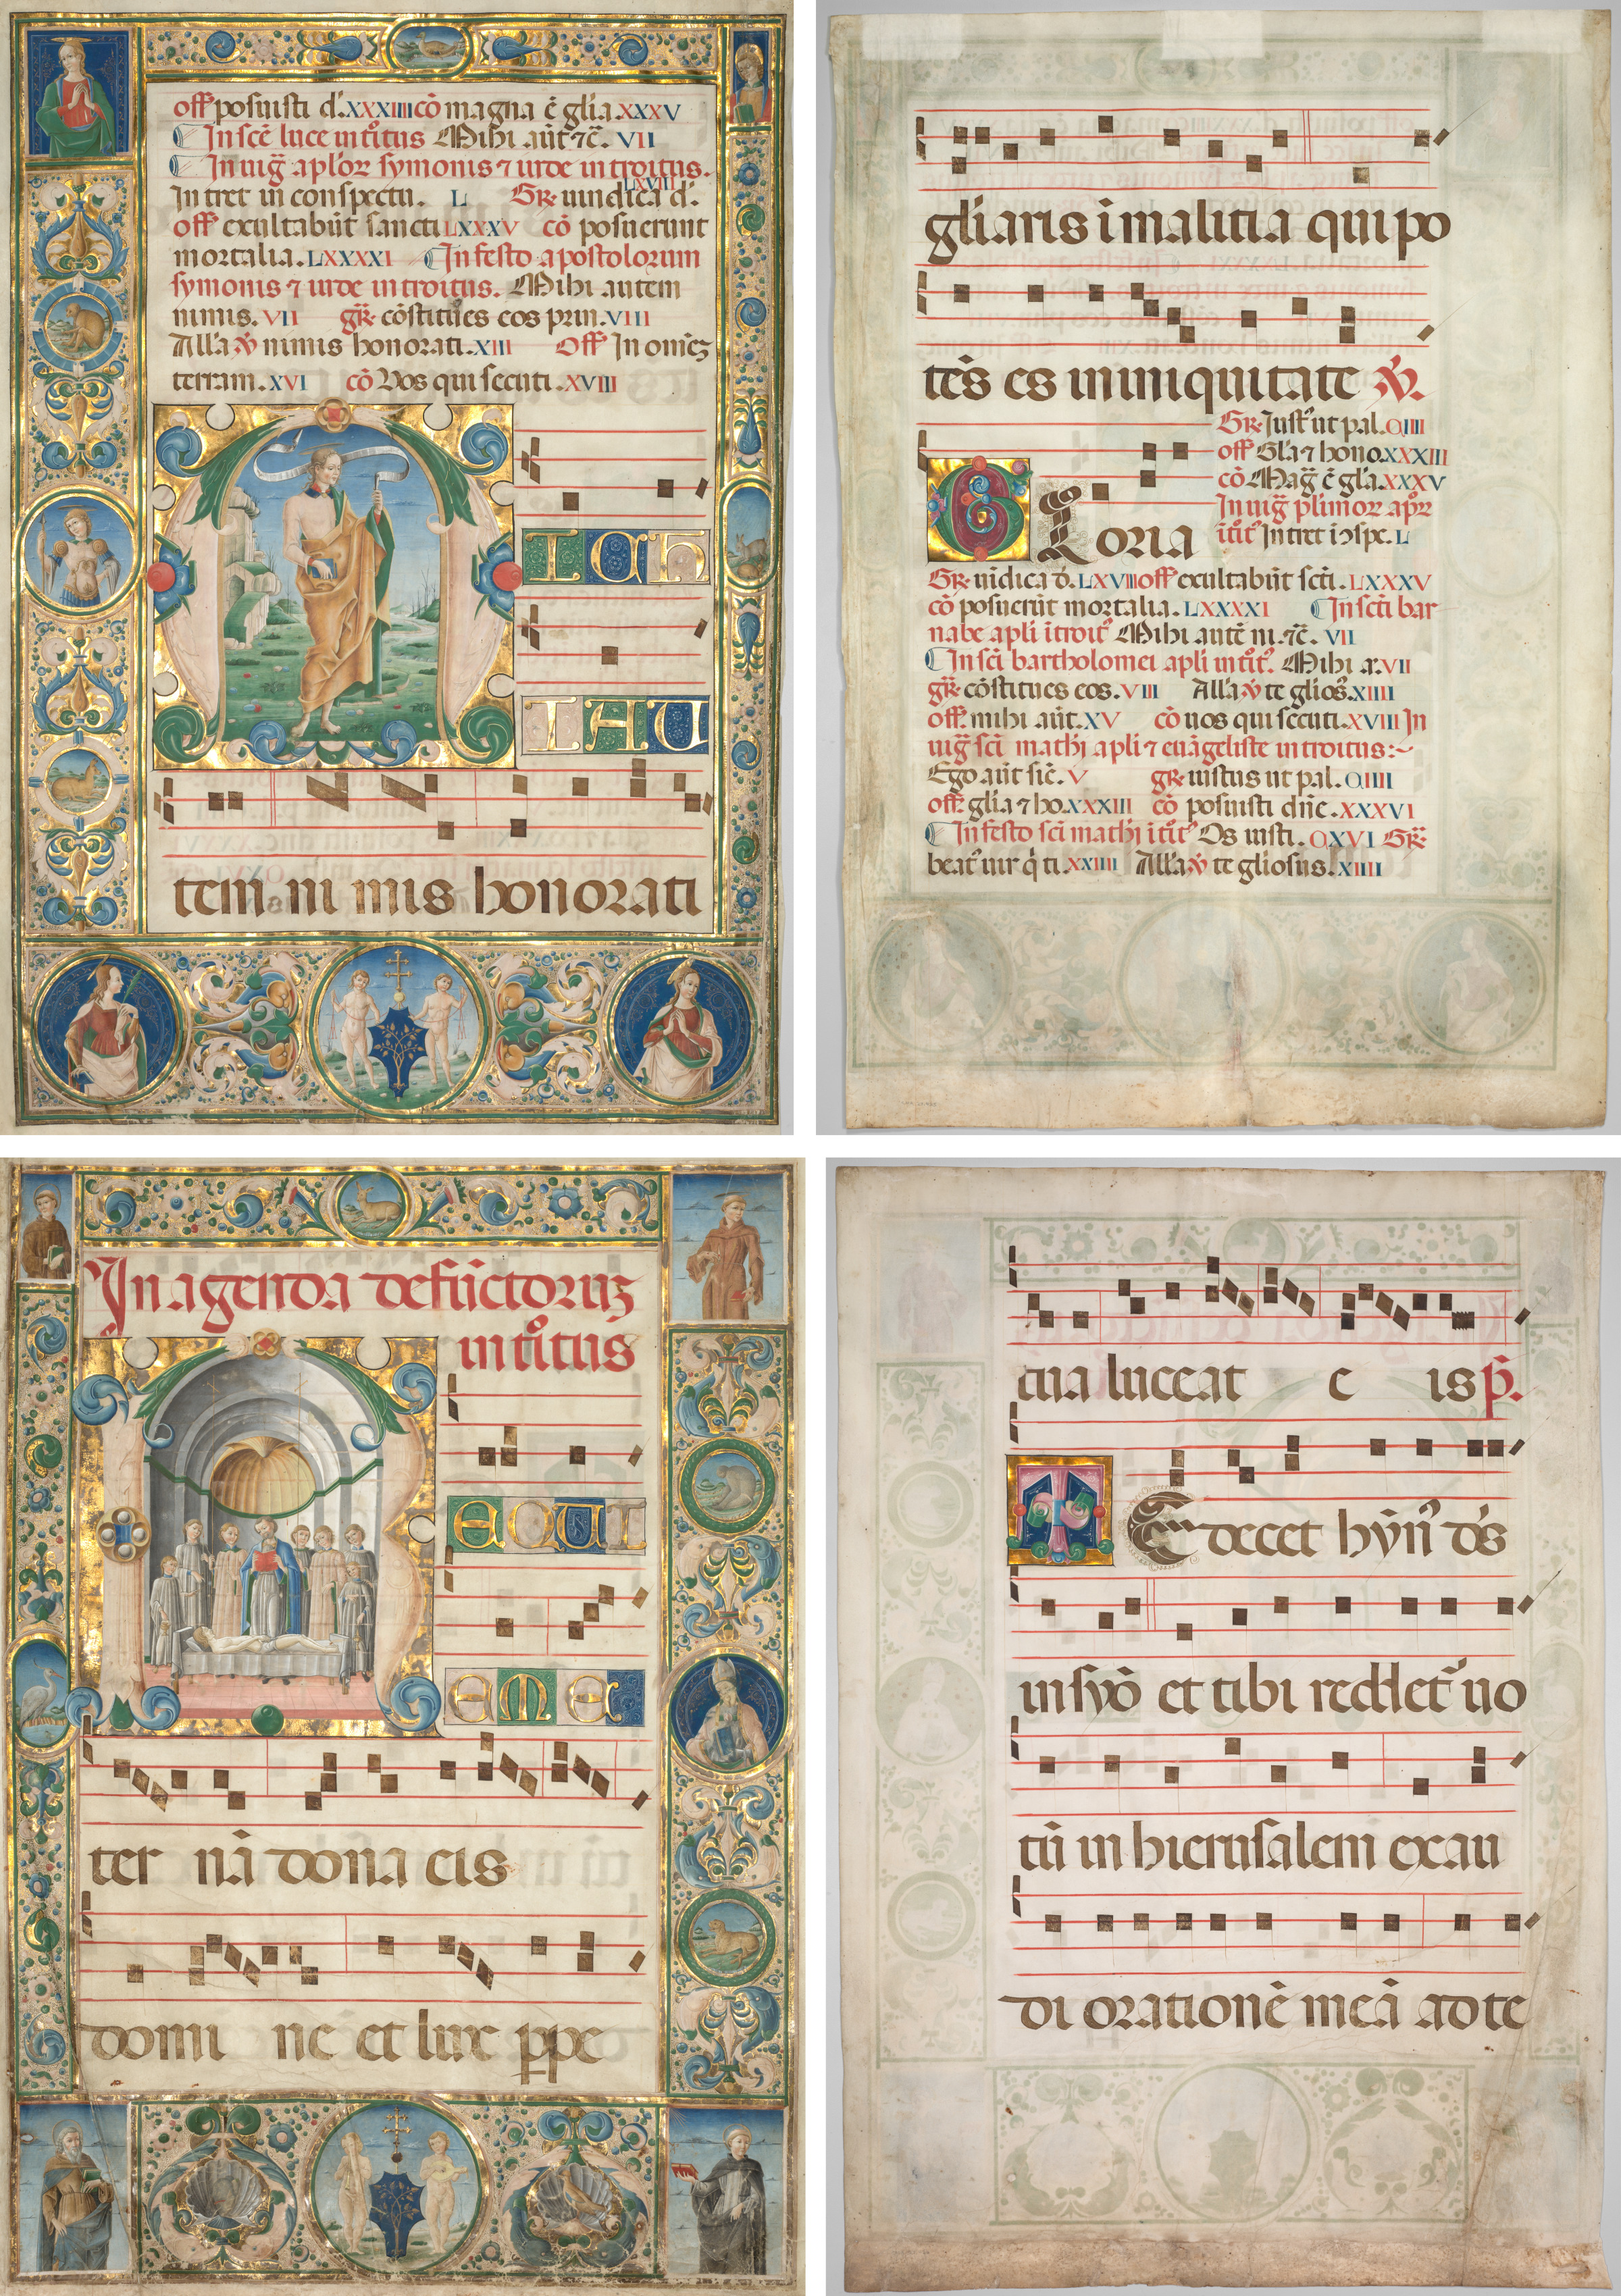 off posuisti d'. XXXIIII cō magna ē gl̄ia. XXXV
In scē luce intͦitus Mihi aūt ⁊c̄. VII
In uig̃ apl̓oꝝ symonis ⁊ iude introitus.
Intret in conspectu. L Gr̃ uindica d'. LXVIII
off exultabūt sancti LXXXV cō posuerunt
mortalia. LXXXXI In festo apostolorum
symonis ⁊ iude introitus. Mihi autem
nimis. VII gr̃ cōstitues eos prin. VIII
All'a ℣ nimis honorati. XIII Off In omēꝫ
terram. XVI cō Vos qui secuti. XVIII
IAH
IAU
tem ni mis honorati
gl̓iaris i malitia qui po
tēs es in iniquitate ℣.
Gr̃ Iust' ut pal. CIIII
off Gl̓a ⁊ hono. XXXIII
cō Mag̃ ē gl̓a. XXXV
In uig̃ pl̓imoꝝ apꝝ
itͦit' Intret i ɔspc. L
G Loria
Gr̃ uīdica d'. LXVIII off exultabūt scti. LXXXV
cō posuerūt mortalia. LXXXXI In scti bar
nabe apli ītroit' Mihi autē ni. ⁊c̄. VII
In sci bartholomei apli intͦit'. Mihi a. VII
gr̃ cōstitues eos. VIII All'a ℣ te glios'. XIIII
off. mihi aūt. XV cō uos qui secuti. XVIII In
uig̃ scī mathi apli ⁊ euāgeliste introitus:~
Ego aūt sic̄. V gr̃ iustus ut pal. CIIII
off. gl̓ia ⁊ ho. XXXIII cō posuisti dn̄e. XXXVI
In festo sci mathi itͦit' Os iusti. CXVI Gr̃
beat' uir q̇ ti. XXIIII All'a ℣ te gliosus. XIIII
In agenda defūctoruꝫ
intͦitus
R EQUI
EM E
ter nā dona eis
domi ne et lux ꝑpe
tua luceat e is p̄.
T E decet hȳn' d's
in syō et tibi reddet' uo
tū in hierusalem exau
di orationē meā ad te